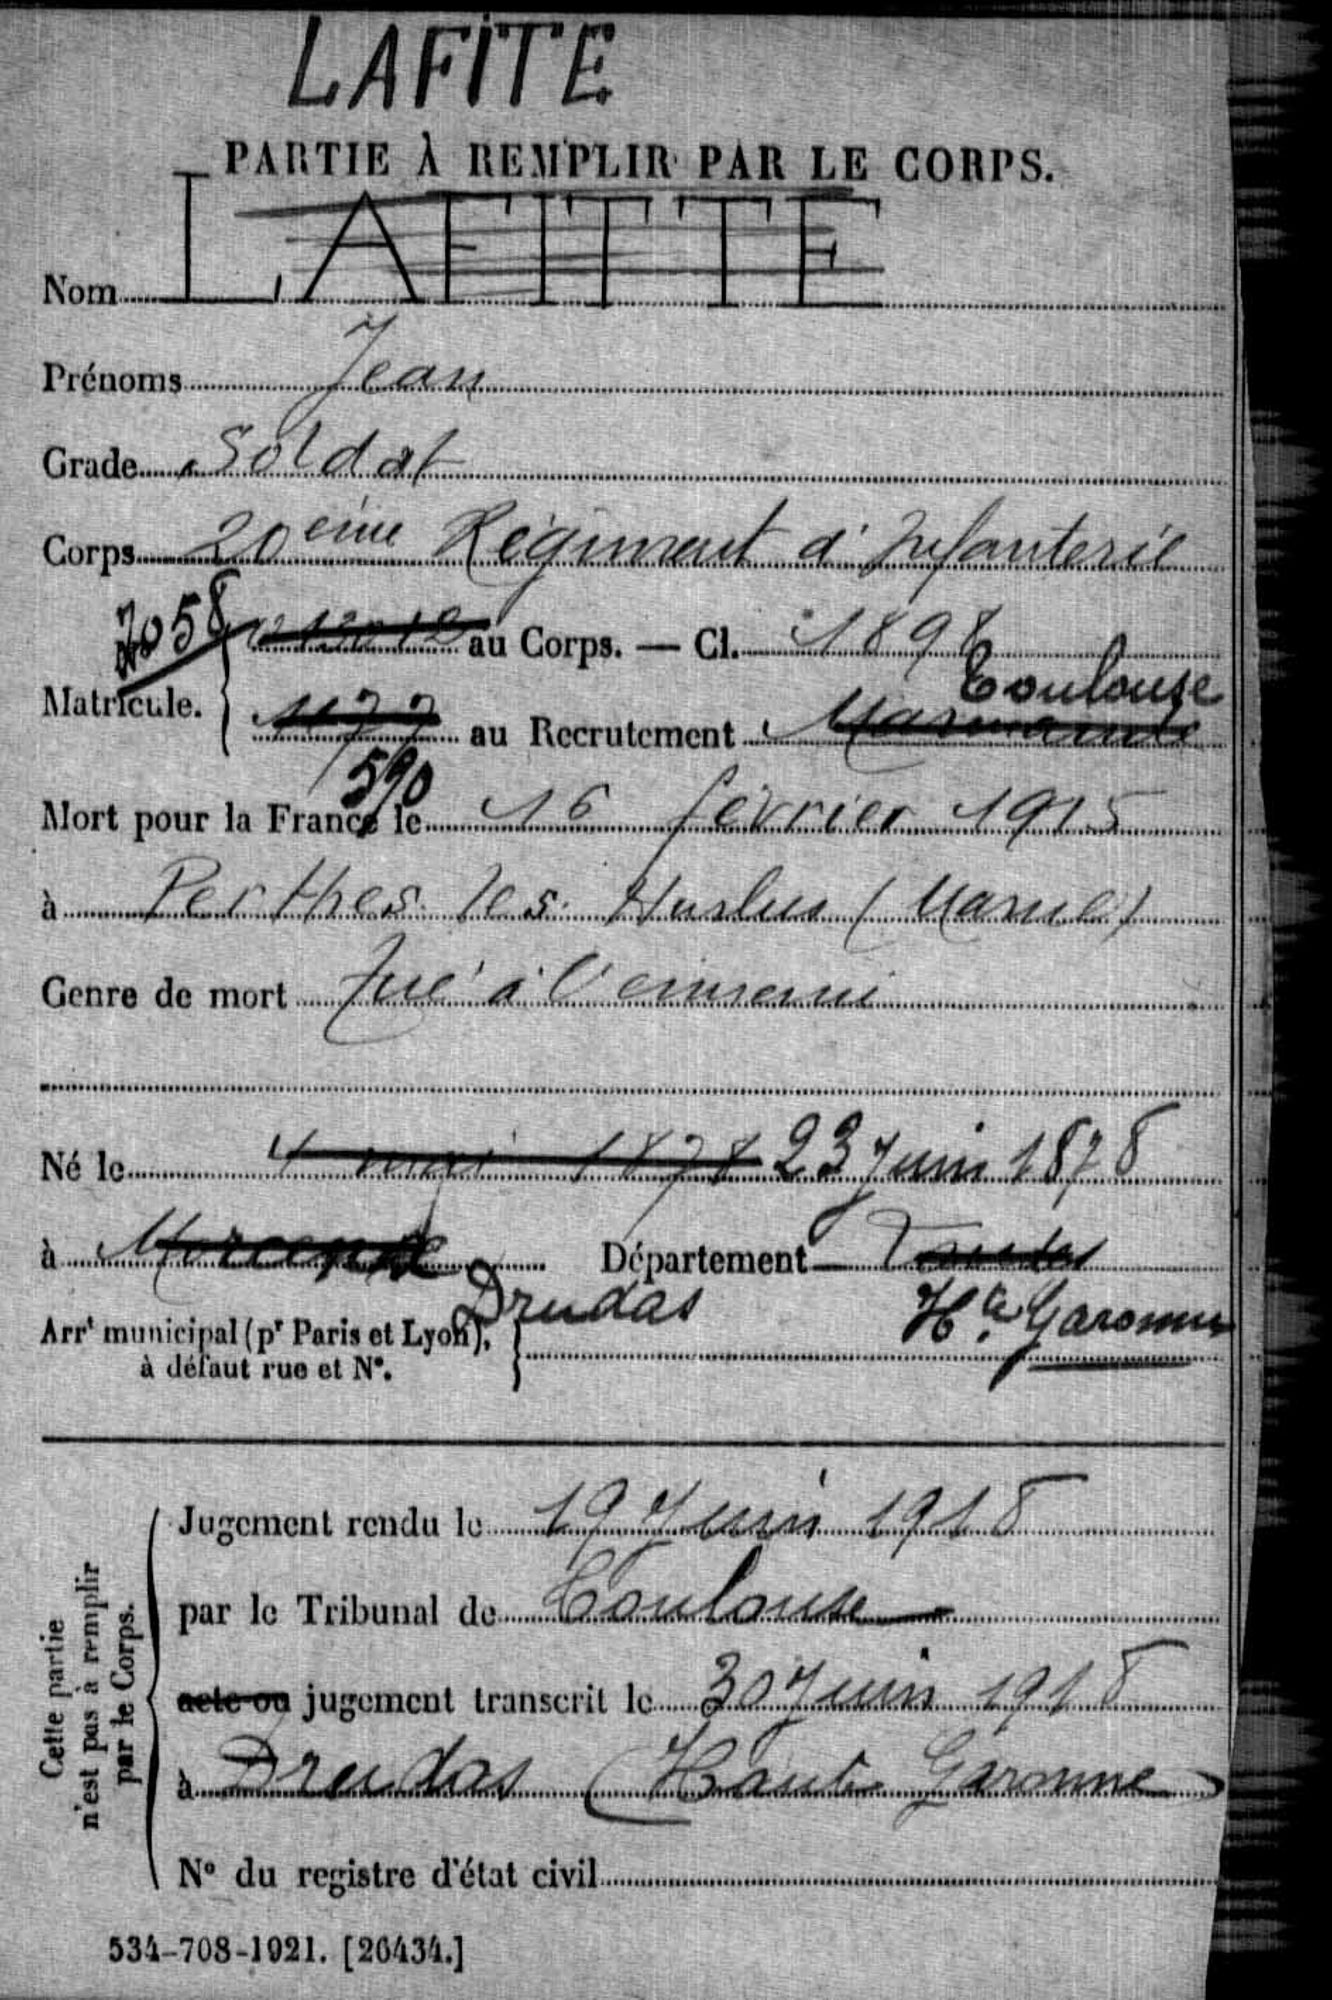 LAFITE
PARTIE À REMPLIR PAR LE CORPS.
Nom LAFITTE
Prénoms Jean
Grade Soldat
Corps 20ème Régiment d'Infanterie
au Corps. — Cl. 1898
Toulouse
Matricule. 1177 au Recrutement Marmande
590
Mort pour la France le 16 février 1915
à Perthes les Hurlus (Marne)
Genre de mort Tué à l'ennemi
Né le 4 mai 1878 23 Juin 1878
à Département
Drudas Hte Garonne
Arrt municipal (pr Paris et Lyon),
à défaut rue et No.
Cette partie
n'est pas à remplir
par le Corps.
Jugement rendu le 19 Juin 1918
par le Tribunal de Toulouse
acte ou jugement transcrit le 30 Juin 1918
à Drudas (Haute Garonne)
No du registre d'état civil
534-708-1921. [26434.]